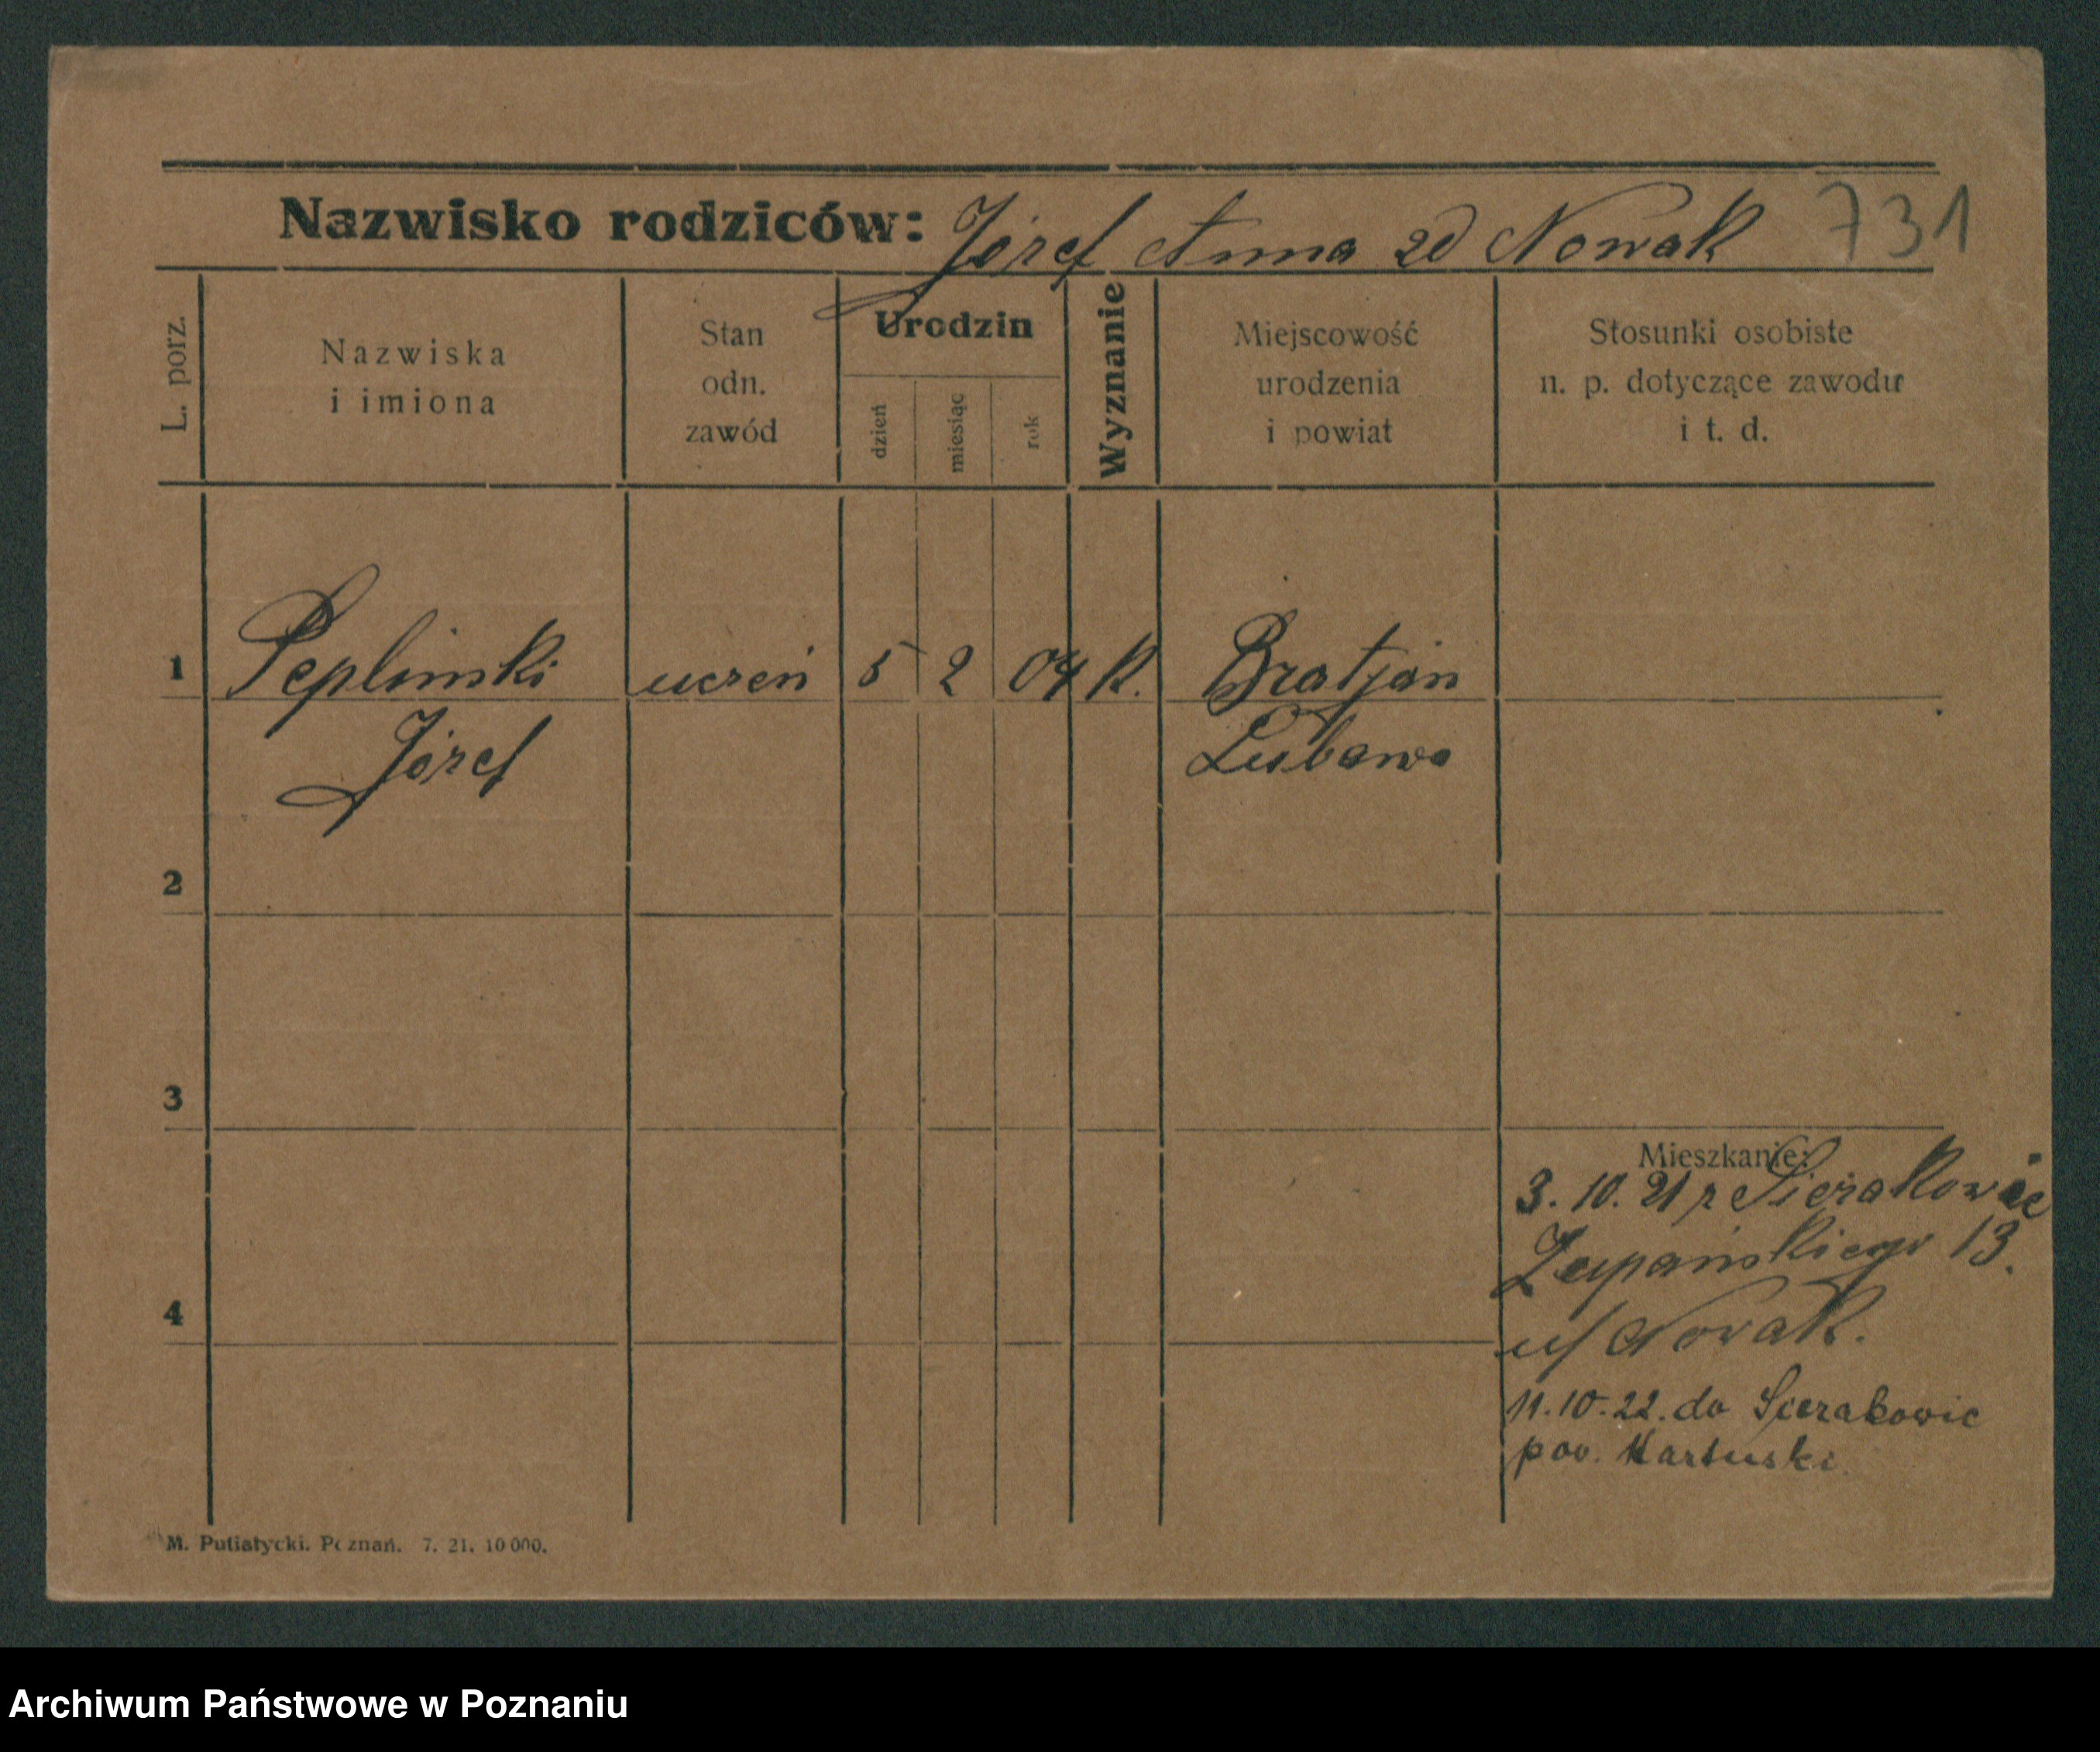 Nazwisko rodziców: Józef Anna zd Nowak 731
L. porz.
Nazwiska
i imiona
Stan
odn.
zawód
Urodzin
dzień
miesiąc
rok
Wyznanie
Miejscowość
urodzenia
i powiat
Stosunki osobiste
n. p. dotyczące zawodu
i t. d.
1 Peplinski uczeń 5 2 04 K. Bratjan
Józef Lubawa
2
3
Mieszkanie:
3. 10. 21 z Sierakowic
Żupańskiego 13.
4
u/ Nowak.
11.10.22. do Sierakowic
pow. Kartuski
M. Putiatycki. Poznań. 7. 21. 10 000.
Archiwum Państwowe w Poznaniu